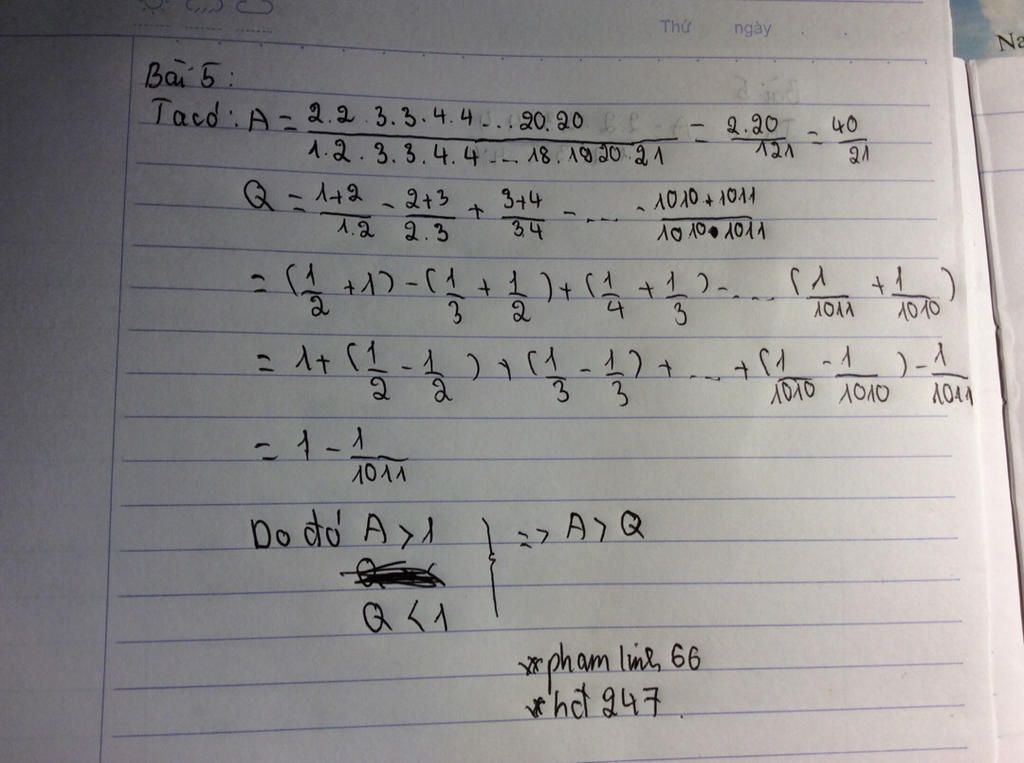 Thứ ngày
Na
Bài 5:
Ta có: A = 2.2.3.3.4.4...20.20 / 1.2.3.3.4.4...18.19 20.21 = 2.20 / 121 = 40 / 21
Q = 1+2 / 1.2 - 2+3 / 2.3 + 3+4 / 34 - .... - 1010+1011 / 1010.1011
= (1/2 + 1) - (1/3 + 1/2) + (1/4 + 1/3) - ... (1/1011 + 1/1010)
= 1 + (1/2 - 1/2) + (1/3 - 1/3) + ... + (1/1010 - 1/1010) - 1/1011
= 1 - 1/1011
Do đó A > 1 => A > Q
Q < 1
*pham linh 66
*hđ 247